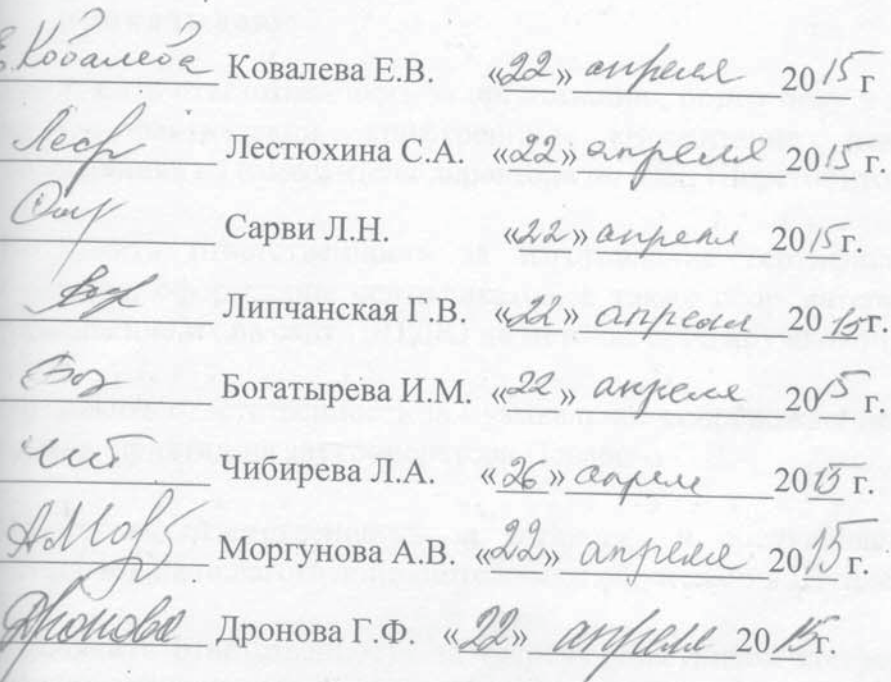 Е.Ковалева Ковалева Е.В. «22» апреля 2015
Лестюхина С.А. «22» апреля 2015 г.
Сарви Л.Н. «22» апреля 2015 г.
Липчанская Г.В. «22» апреля 2015г.
Богатырева И.М. «22» апреля 2015 г.
Чибирева Л.А. «26» апреля 2015 г.
Моргунова А.В. «22» апреля 2015 г.
Дронова Дронова Г.Ф. «22» апреля 2015г.